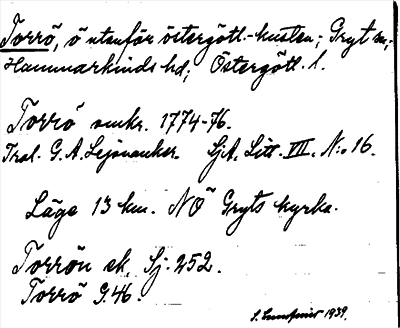 Torrö, ö utanför östergötl.-kusten; Gryt sn;
Hammarkinds hd; Östergötl. l.
Torrö omkr. 1774-76.
Tral. G. A. Lejonanker. SjA. Litt. VII. N:o 16.
Läge 13 km. NÖ Gryts kyrka.
Torrön ek. Sj. 252.
Torrö G.46.
1939.